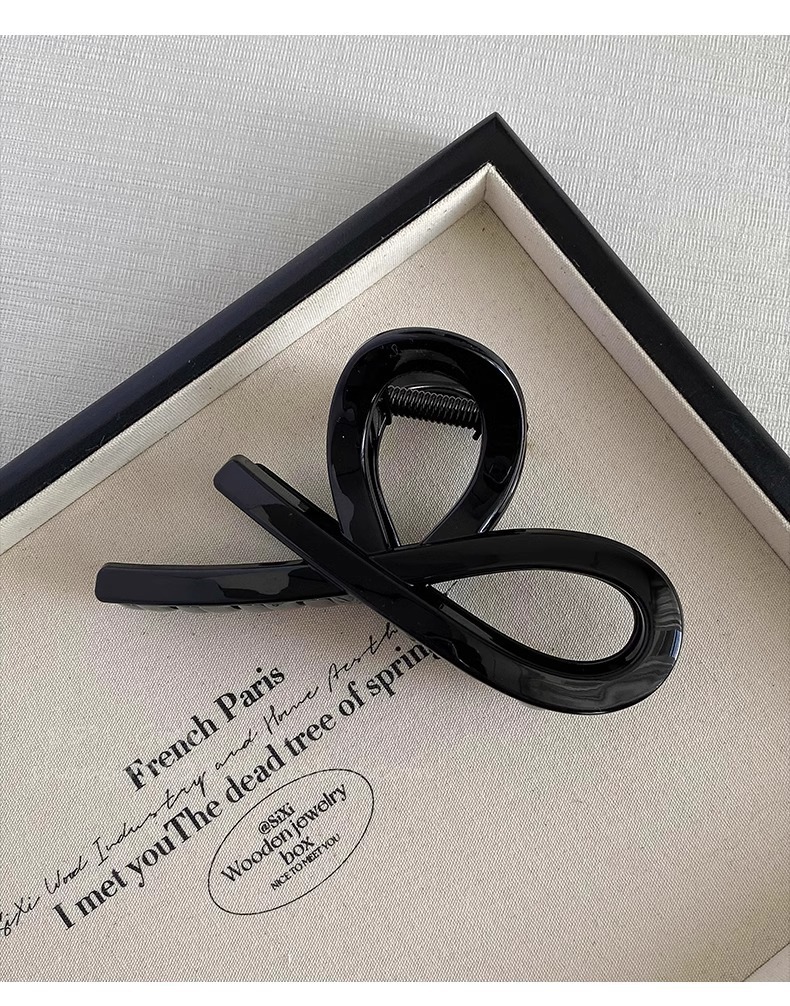 French Paris
SiXi Wood Industry and Home Aesth
I met youThe dead tree of spring
@SiXi
Wooden jewelry
box
NICE TO MEET YOU